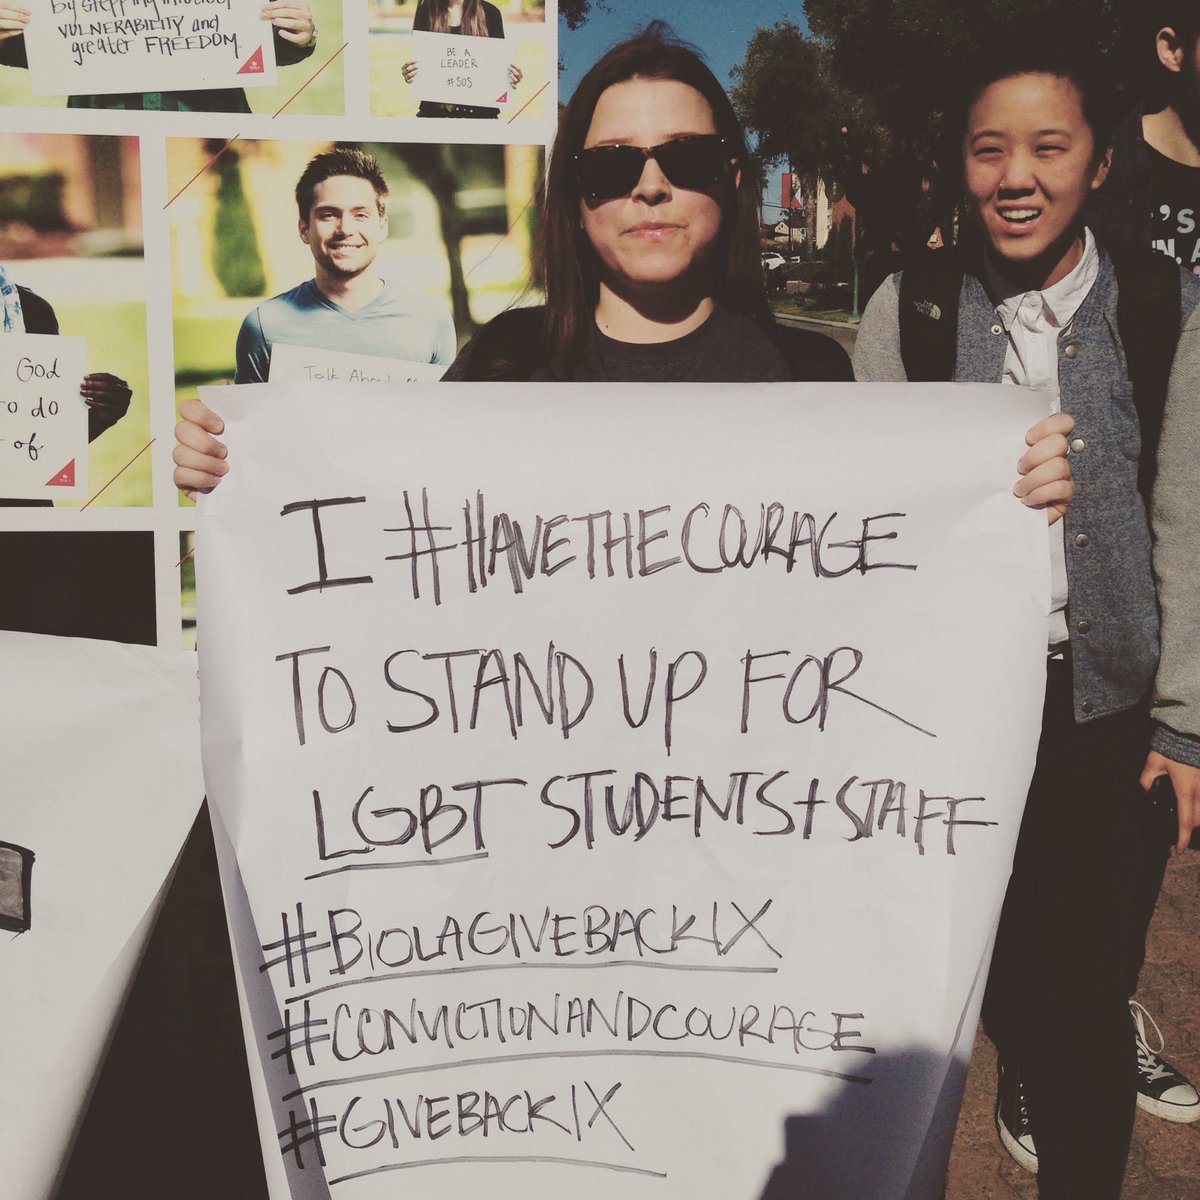 VULNERABILITY and
greater FREEDOM.
BE A
LEADER
#SOS
God
to do
of
Talk About
I #HAVETHECOURAGE
TO STAND UP FOR
LGBT STUDENTS + STAFF
#BIOLAGIVEBACKIX
#CONVICTIONANDCOURAGE
#GIVEBACKIX